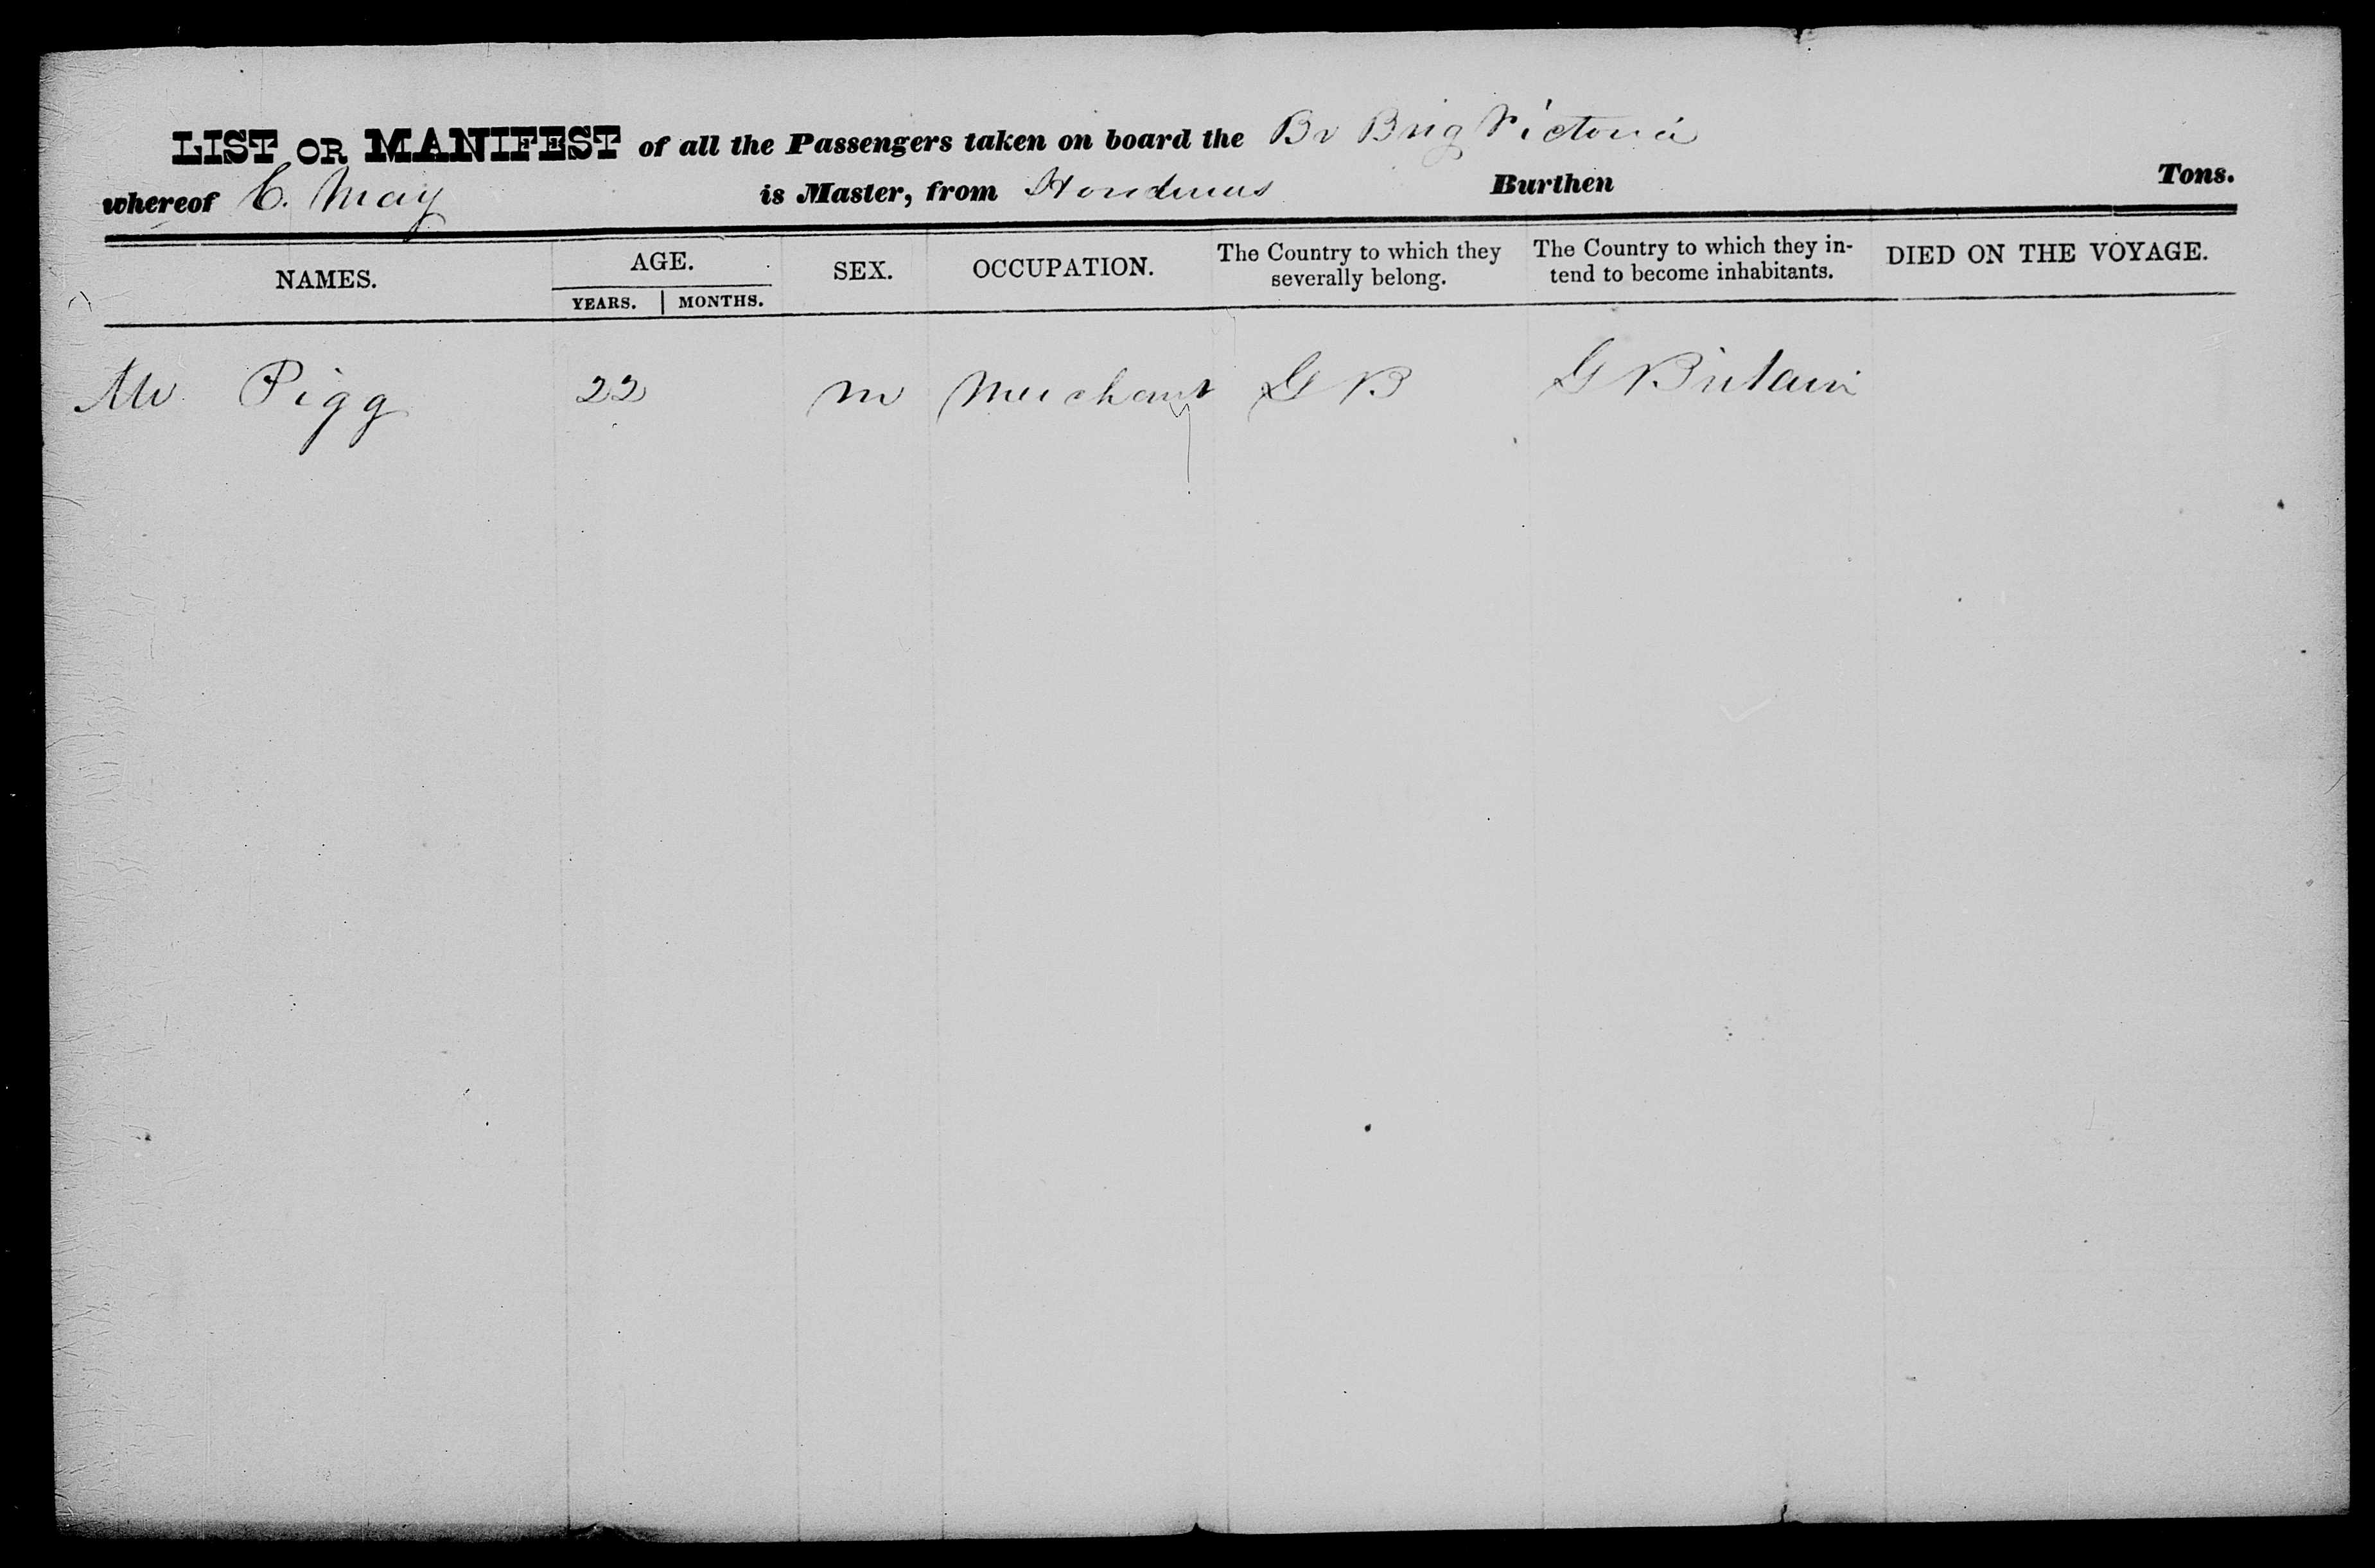 LIST OR MANIFEST of all the Passengers taken on board the Br Brig Victoria
whereof C. May is Master, from Honduras Burthen Tons.
NAMES. AGE. SEX. OCCUPATION. The Country to which they severally belong. The Country to which they in-tend to become inhabitants. DIED ON THE VOYAGE.
YEARS. MONTHS.
Mr Pigg 22 m Merchant G B G Britain